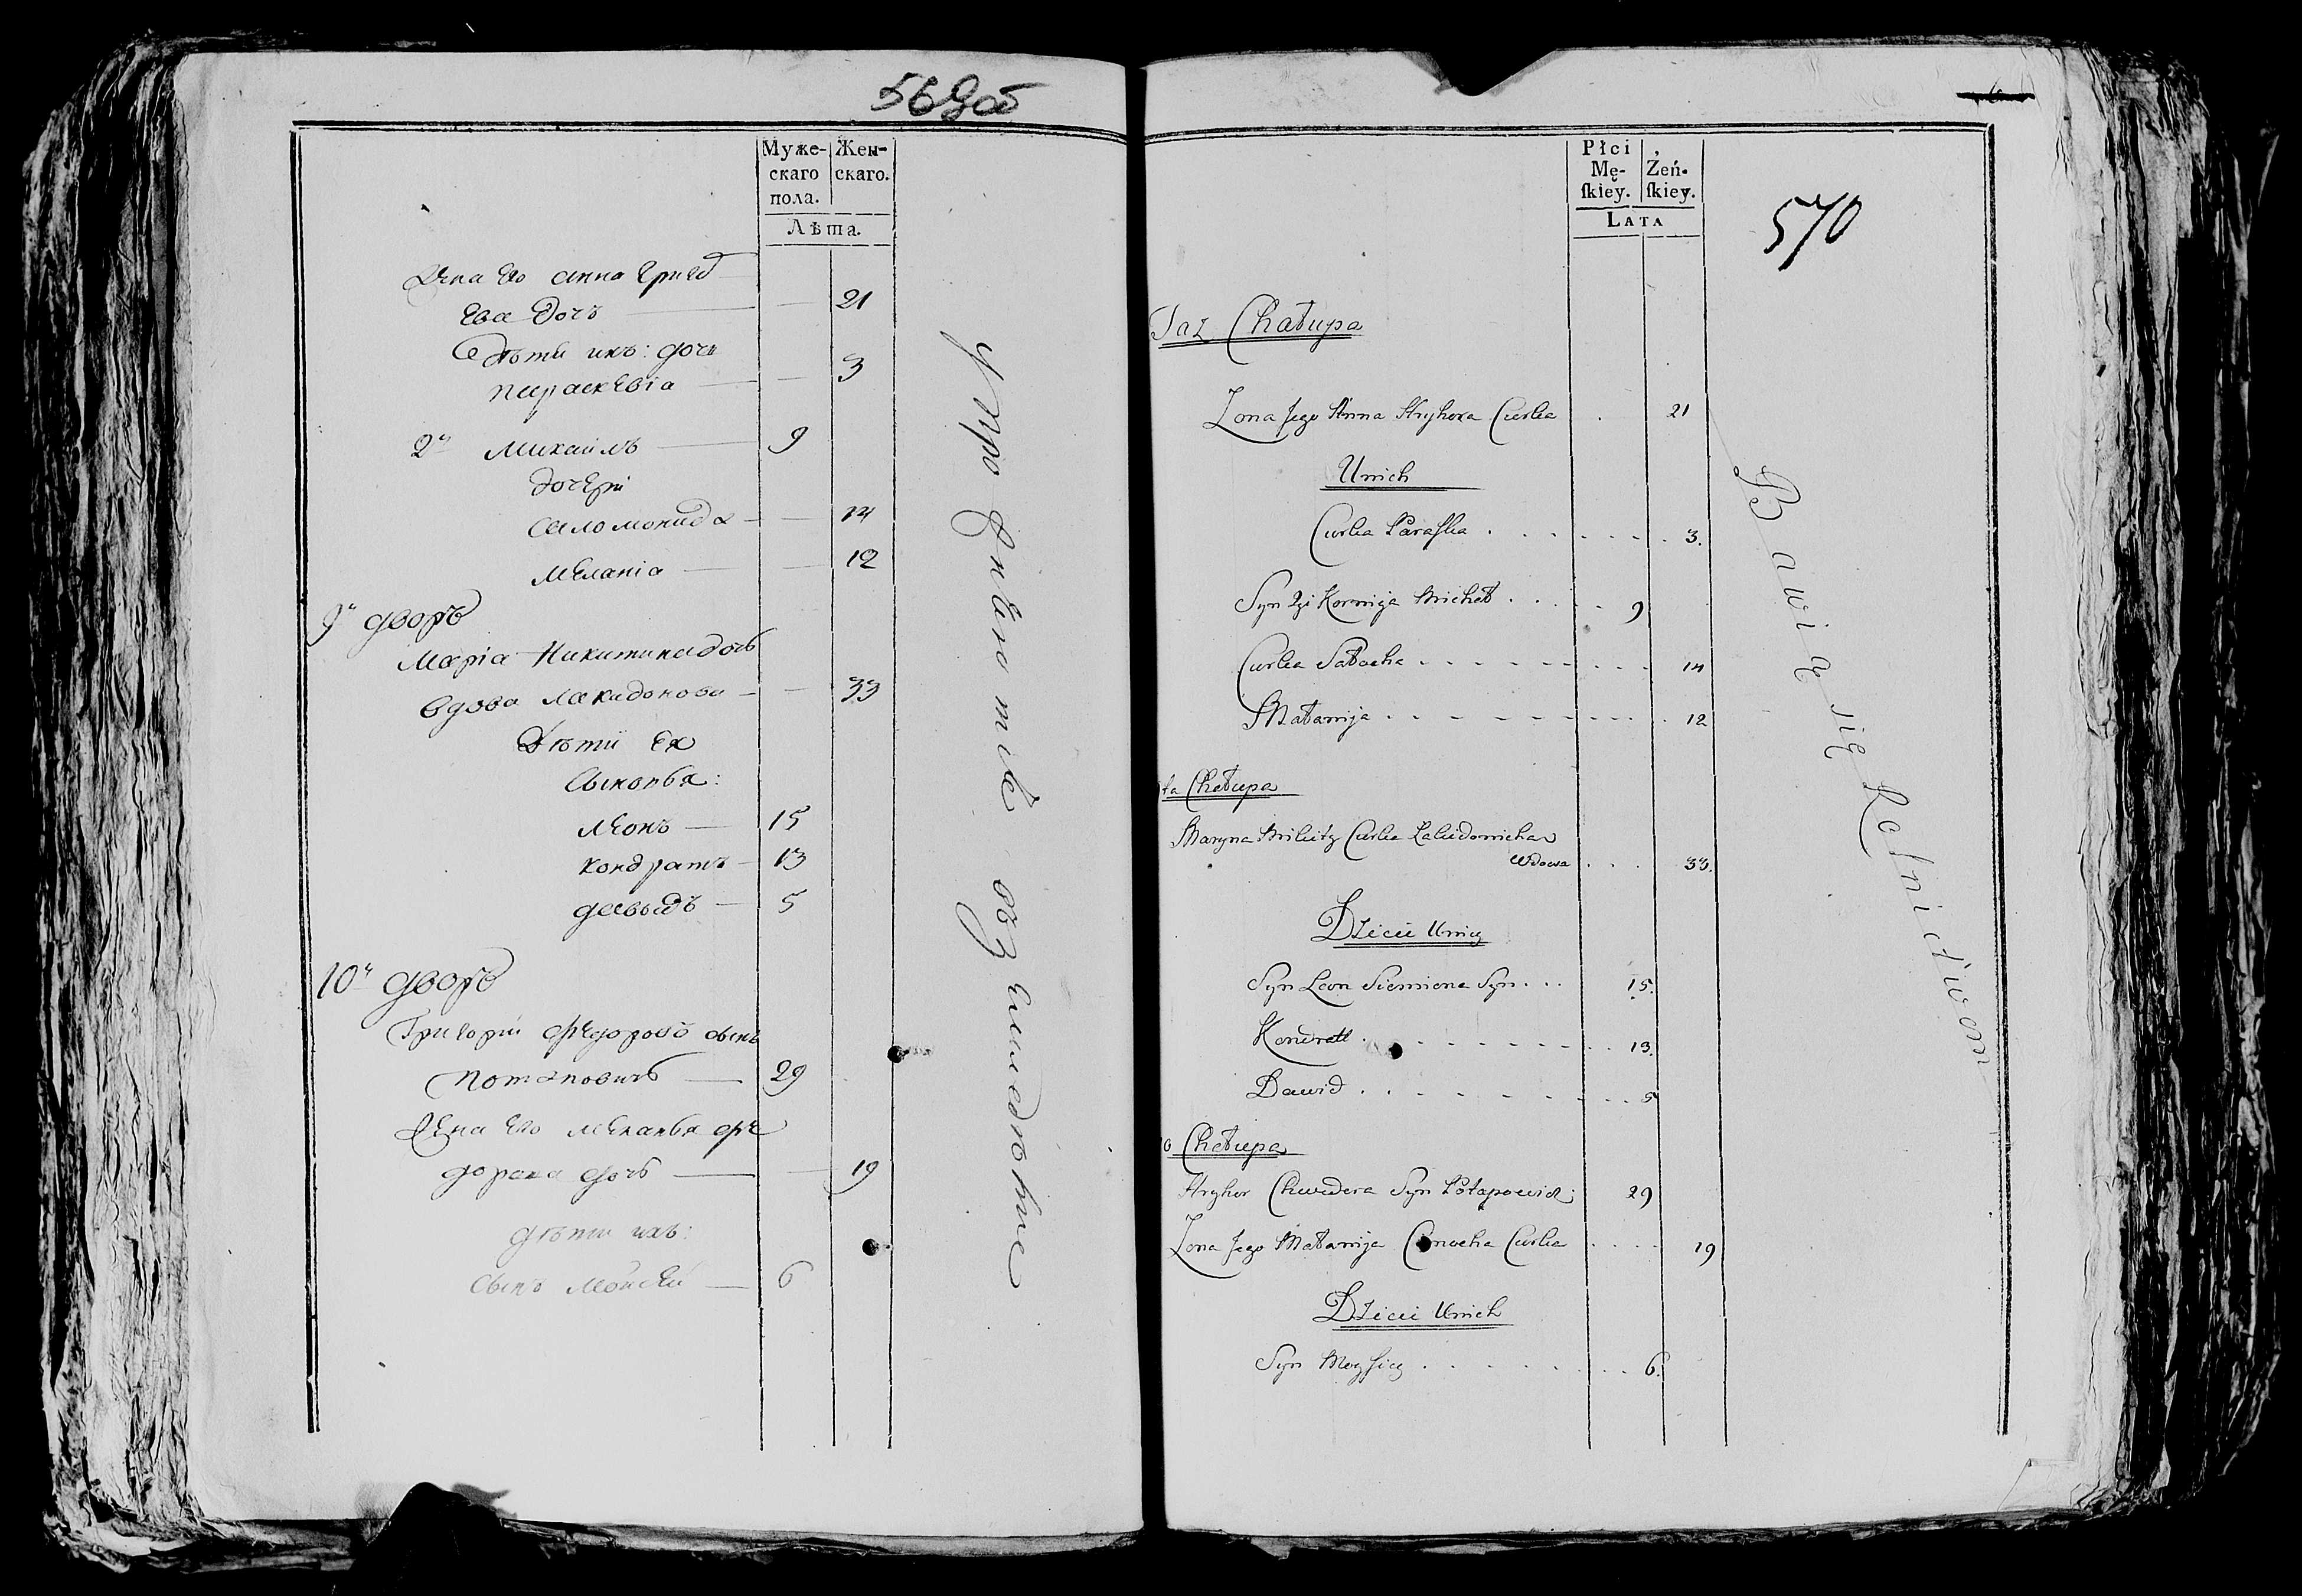 569об
Муже-
скаго
пола.
Жен-
скаго.
Лѣта.
Жена его Анна Григо
ева дочь 21
дѣти ихъ: дочь
Параскевіа 3
2й Михаилъ 9
дочери
Саломонида 14
Меланіа 12
9й дворъ
Маріа Никитина дочь
вдова Лакидонова 33
Дѣти ея
Сыновья:
Леонъ 15
Кондратъ 13
Давыдъ 5
10й дворъ
Григорій Федоровъ сынъ
Потаповичъ 29
Жена его Меланья Фе
дорова дочь 19
дѣти ихъ:
Сынъ Мойсей 6
Упражненiе
570
Płci
Mę-
skiey.
Żeń-
skiey.
Lata
Taż Chałupa
Żona Jego Anna Hryhora Curka . 21
Unich
Curka Paraska . . . 3.
Syn 2gi Kornija Michał . . . 9
Curka Sałocha . . . 14
Małanija . . . 12
ta Chałupa
Maryna Mikity Curka Łakidonicha
wdowa . . . 33.
Dzieci Unięy
Syn Leon Siemiona Syn . . . 15.
Kondratt . . . 13.
Dawid . . . 5
0 Chałupa
Hryhor Chwedora Syn Potapowicz; 29
Żona Jego Małanija Curka . . . 19
Dzieci Unich
Syn Moysiey . . . 6.
Bawią się Rolnictwem